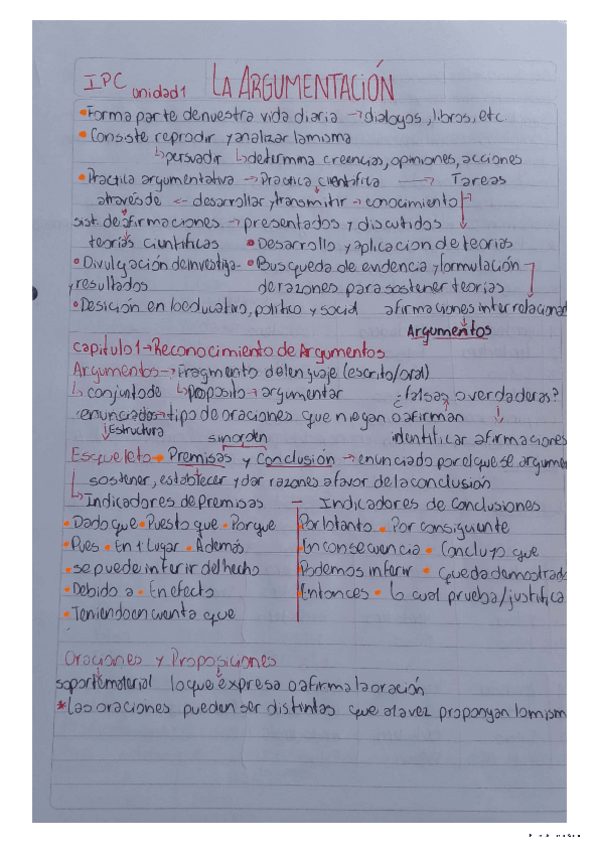 IPC unidad 1 LA ARGUMENTACIÓN
• Forma parte de nuestra vida diaria → dialogos, libros, etc
• Consiste reprodir y analizar la misma
↳ persuadir ↳ determina creencias, opiniones, acciones
• Practica argumentativa → Practica científica → Tareas
através de <- desarrollar y transmitir → conocimiento
sist. de afirmaciones → presentados y discutidos
teorías científicas • Desarrollo y aplicacion de teorías
• Divulgación de investiga- • Busqueda de evidencia y formulación
y resultados de razones para sostener teorías
• Desición en lo educativo, politico y social afirmaciones interrelacionad
Argumentos
Capitulo 1 → Reconocimiento de Argumentos
Argumentos → Fragmento de lenguaje (escrito/oral)
↳ conjunto de ↳ proposito → argumentar ¿falsas o verdaderas?
enunciados → tipo de oraciones que niegan o afirman ↓
↓ Estructura sin orden identificar afirmaciones
Esqueleto • Premisas y Conclusión → enunciado por el que se argumen
sostener, establecer y dar razones a favor de la conclusión
↳ Indicadores de premisas — Indicadores de conclusiones
• Dado que • Puesto que • Porque Por lo tanto • Por consiguiente
• Pues • En 1° lugar • Además En consecuencia • Concluyo que
• se puede inferir del hecho Podemos inferir • queda demostrado
• Debido a • En efecto Entonces • lo cual prueba/justifica
• Teniendo en cuenta que
Oraciones y Proposiciones
soporte material lo que expresa o afirma la oración
* Las oraciones pueden ser distintas que a la vez propongan lo mism